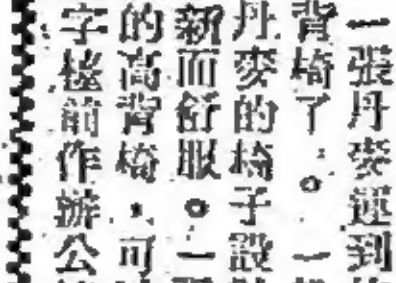 一張丹麥運到
背椅了。一
丹麥的椅子設
新而舒服。一
的高背椅，可
字檯前作辦公